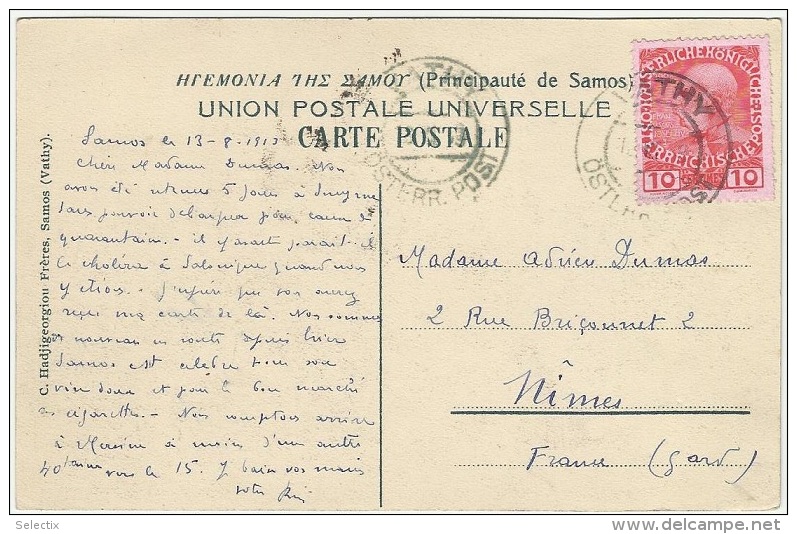 ΗΓΕΜΟΝΙΑ ΤΗΣ ΣΑΜΟΥ (Principauté de Samos)
UNION POSTALE UNIVERSELLE
CARTE POSTALE
VATHY
ÖSTERR. POST
10 10
C. Hadjigeorgiou Frères, Samos (Vathy).
Samos le 13-8-191
Chère Madame Dumas. Nous
avons été retenus 5 jours à Smyrne
sans pouvoir débarquer pour cause de
quarantaine - il y avait parait-il
le choléra à Salonique quand nous
y étions. - J'espère que vous aurez
reçu ma carte de là. Nous sommes
de nouveau en route depuis hier
Samos est célèbre pour son
vin doux et pour le bon marché
des cigarettes. - Nous comptons arriver
à Mersine à moins d'une autre
40taine vers le 15. J vos mains
votre
Madame Adrien Dumas
2 Rue Briçonnet 2
Nîmes
France (Gard)
Selectix
delcampe.net